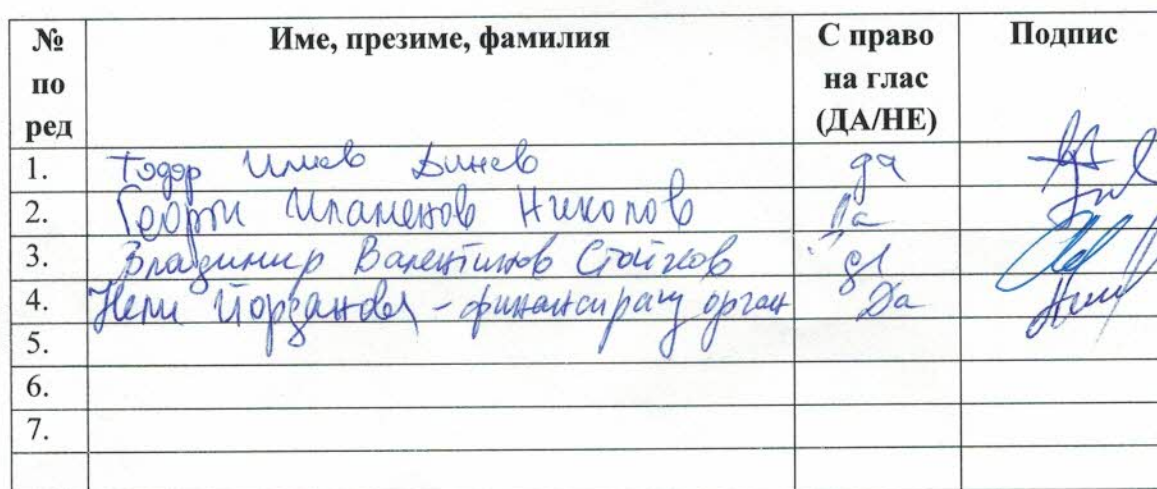 № по ред Име, презиме, фамилия С право на глас (ДА/НЕ) Подпис
1. Тодор Илиев Динев да
2. Георги Николов Да
3. Владимир Валентинов Стойков да
4. Нели Йорданова - финансиращ орган Да
5.
6.
7.